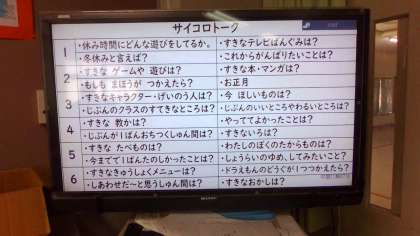 サイコロトーク
1
・休み時間にどんな遊びをしてるか。
・すきなテレビばんぐみは?
・冬休みと言えば?
・これからがんばりたいことは?
2
・すきな ゲームや 遊びは?
・すきな本・マンガは?
・もしも まほうが つかえたら?
・お正月
3
・すきなキャラクター・げいのう人は?
・今 ほしいものは?
・じぶんのクラスのすてきなところは?
・じぶんのいいところやわるいところは?
4
・すきな 教かは?
・やっててよかったことは?
・じぶんが1ばんおちつくしゅん間は?
・すきないろは?
5
・すきな たべものは?
・わたしのぼくのたからものは?
・今までで1ばんたのしかったことは?
・しょうらいのゆめ、してみたいこと?
6
・すきなきゅうしょくメニューは?
・ドラえもんのどうぐが1つつかえたら?
・しあわせだ〜と思うしゅん間は?
・すきなおかしは?
SHARP